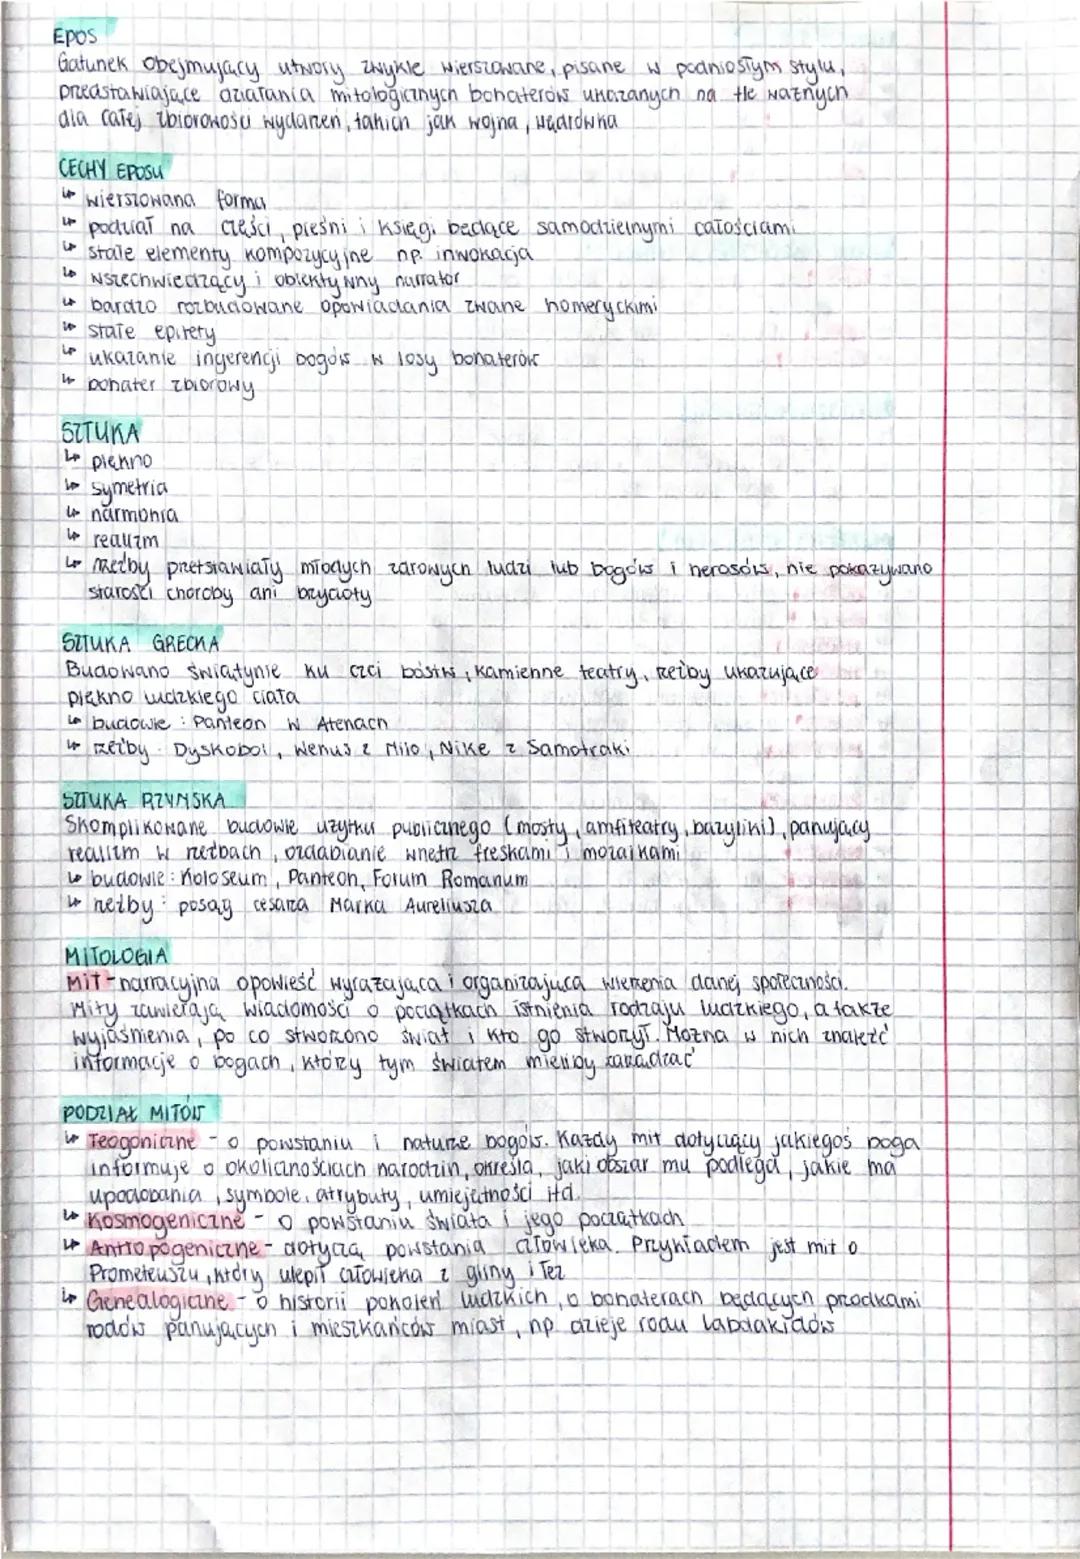 EPOS
Gatunek obejmujący utwory zwykle wierszowane, pisane w podniosłym stylu,
przedstawiające działania mitologicznych bohaterów ukazanych na tle ważnych
dla całej zbiorowości wydarzeń, takich jak wojna, wędrówka
CECHY EPOSU
↳ wierszowana forma
↳ podział na części, pieśni i księgi będące samodzielnymi całościami
↳ stałe elementy kompozycyjne np. inwokacja
↳ wszechwiedzący i obiektywny narrator
↳ bardzo rozbudowane opowiadania zwane homeryckimi
↳ stałe epitety
↳ ukazanie ingerencji bogów w losy bohaterów
↳ bohater zbiorowy
SZTUKA
↳ piękno
↳ symetria
↳ harmonia
↳ realizm
↳ rzeźby przetstawiały młodych zdrowych ludzi lub bogów i herosów, nie pokazywano
starości choroby ani brzydoty
SZTUKA GRECKA
Budowano świątynie ku czci bóstw, kamienne teatry, rzeźby ukazujące
piękno ludzkiego ciała
↳ budowle : Panteon w Atenach
↳ rzeźby : Dyskobol, Wenus z Milo, Nike z Samotraki
SZTUKA RZYMSKA
Skomplikowane budowle użytku publicznego (mosty, amfiteatry, bazyliki), panujący
realizm w rzeźbach, ozdabianie wnętrz freskami i mozaikami
↳ budowle : Koloseum, Panteon, Forum Romanum
↳ rzeźby : posąg cesarza Marka Aureliusza
MITOLOGIA
Mit - narracyjna opowieść wyrażająca i organizująca wierzenia danej społeczności.
Mity zawierają wiadomości o początkach istnienia rodzaju ludzkiego, a także
wyjaśnienia, po co stworzono świat i kto go stworzył. Można w nich znaleźć
informacje o bogach, którzy tym światem mieliby zarządzać
PODZIAŁ MITÓW
↳ Teogoniczne - o powstaniu i naturze bogów. Każdy mit dotyczący jakiegoś boga
informuje o okolicznościach narodzin, określa, jaki obszar mu podlega, jakie ma
upodobania, symbole, atrybuty, umiejętności itd.
↳ Kosmogeniczne - o powstaniu świata i jego początkach
↳ Antropogeniczne - dotyczą powstania człowieka. Przykładem jest mit o
Prometeuszu, który ulepił człowieka z gliny i łez
↳ Genealogiczne - o historii pokoleń ludzkich, o bohaterach będących przodkami
rodów panujących i mieszkańców miast, np. dzieje rodu Labdakidów